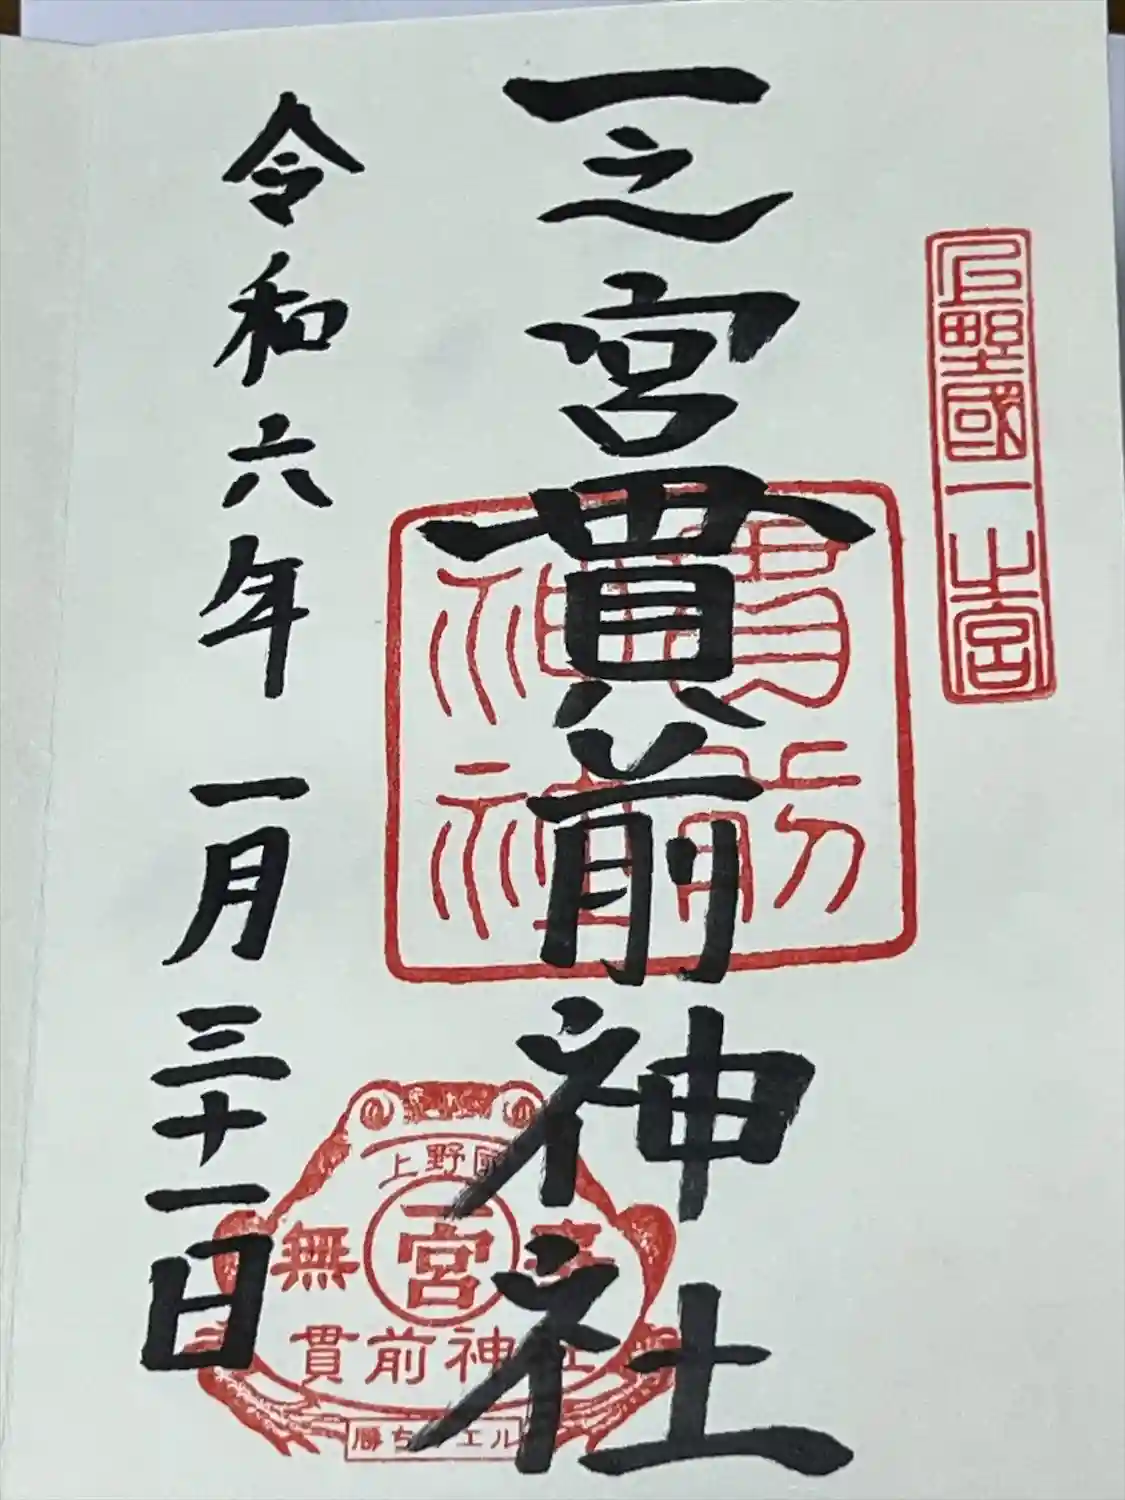 上野國一之宮
一之宮貫前神社
貫前
神社
令和六年一月三十一日
上野國
無事
一宮
貫前神社
勝ちカエル